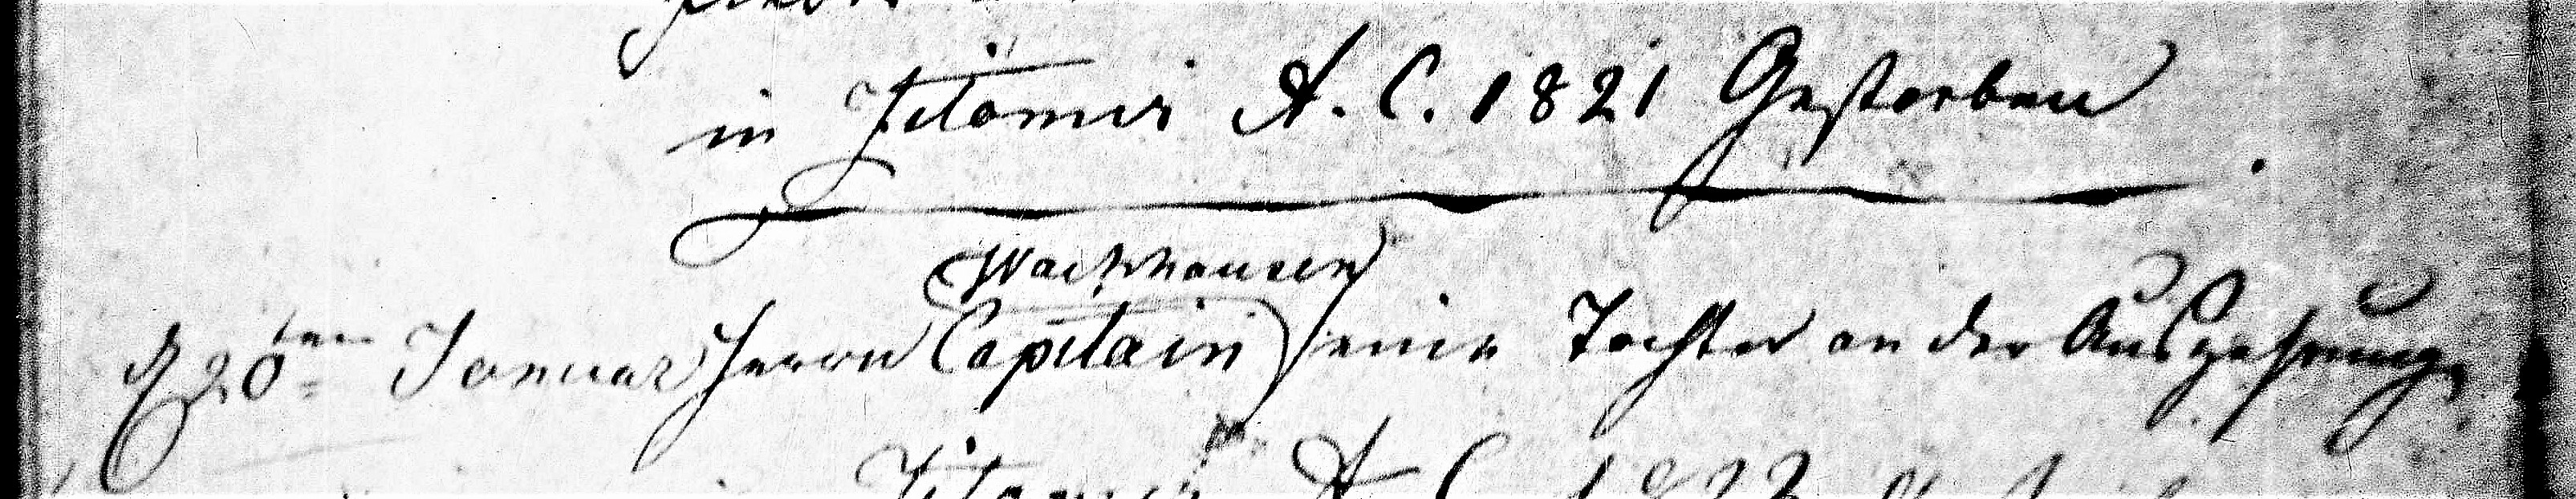 in Jitomir A. C. 1821 Gestorben
Wachhausen
d 20ten Januar Herrn Capitain seine Tochter an der Auszehrung
Jitomir A C 1822